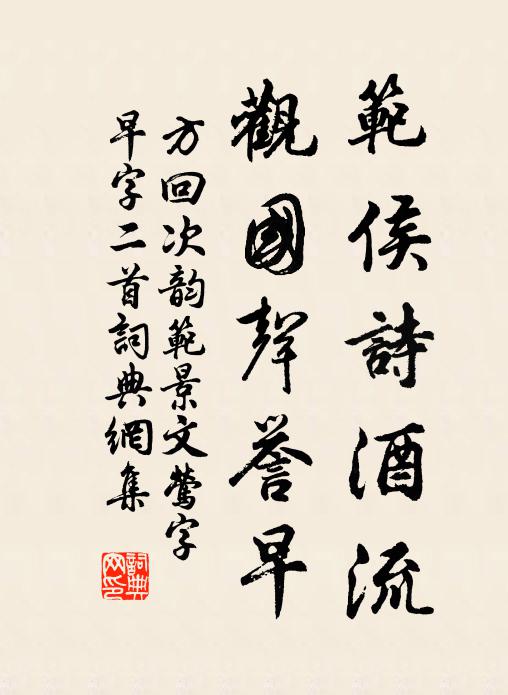 範侯詩酒流
觀國聲譽早
方回次韵範景文鶯字
早字二首詞典網集
詞典
网印